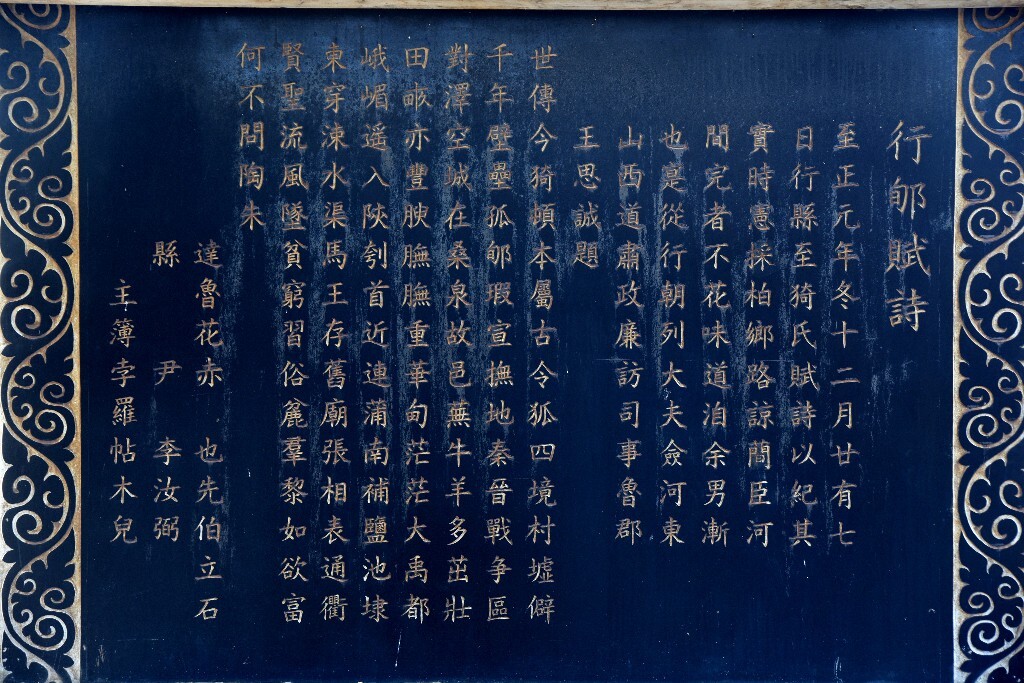 行郇賦詩
至正元年冬十二月廿有七
日行縣至猗氏賦詩以紀其
實時憲採柏鄉路諒簡臣河
間完者不花味道洎余男漸
也是從行朝列大夫僉河東
山西道肅政廉訪司事魯郡
王思誠題
世傳今猗頓本屬古令狐四境村墟僻
千年壁壘孤郇瑕宣撫地秦晉戰争區
對澤空城在桑泉故邑蕪牛羊多茁壯
田畝亦豐腴膴膴重華甸茫茫大禹都
峨嵋遥入陝刳首近連蒲南補鹽池埭
東穿涑水渠馬王存舊廟張相表通衢
賢聖流風墜貧窮習俗麄羣黎如欲富
何不問陶朱
達魯花赤 也先伯立石
縣 尹 李汝弼
主簿孛羅帖木兒